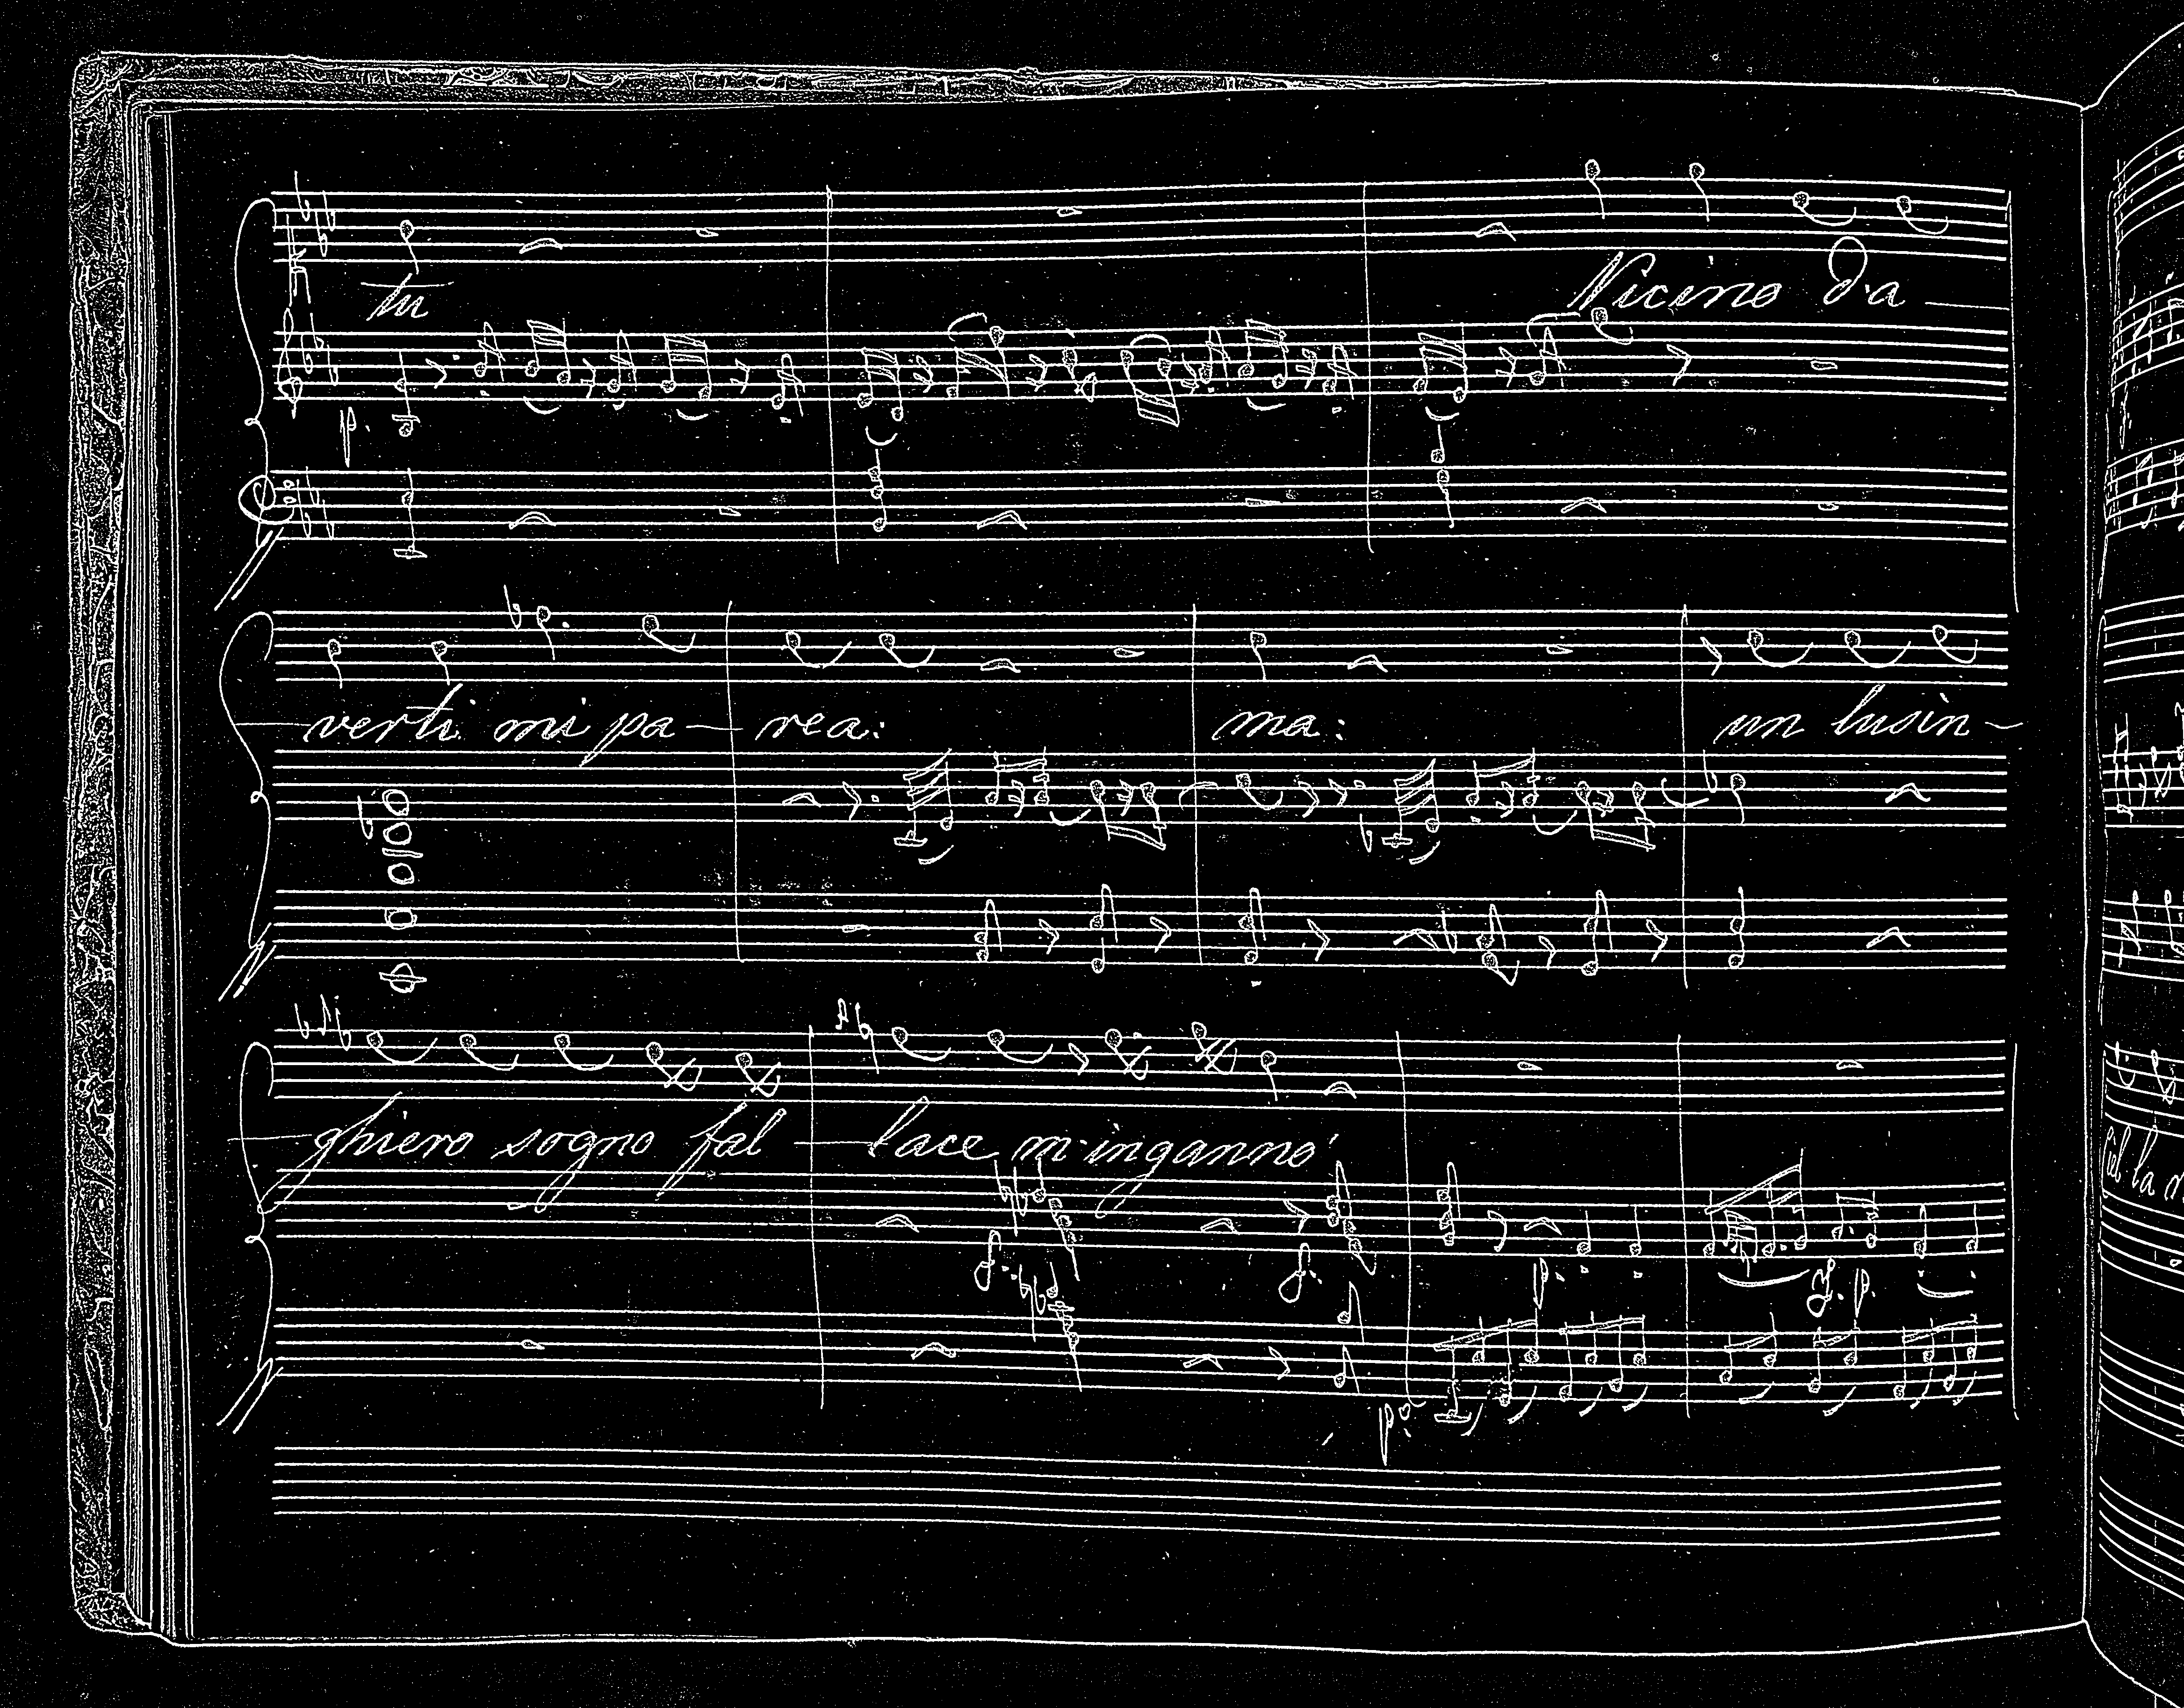 tu Vicino d'a
p.
verti mi pa rea: ma: un lusin
ghiero sogno fal lace m'inganno'
f. f. p. f. p.
p.